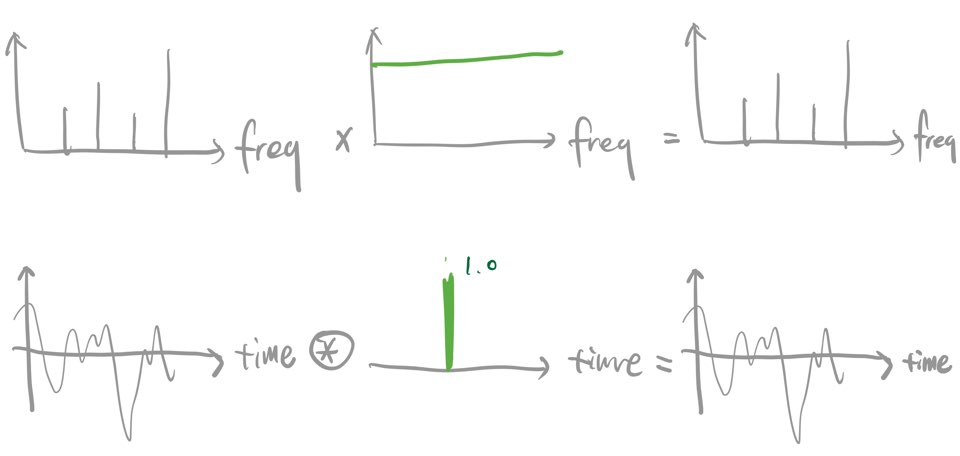 freq x freq = freq
1.0
time * time = time